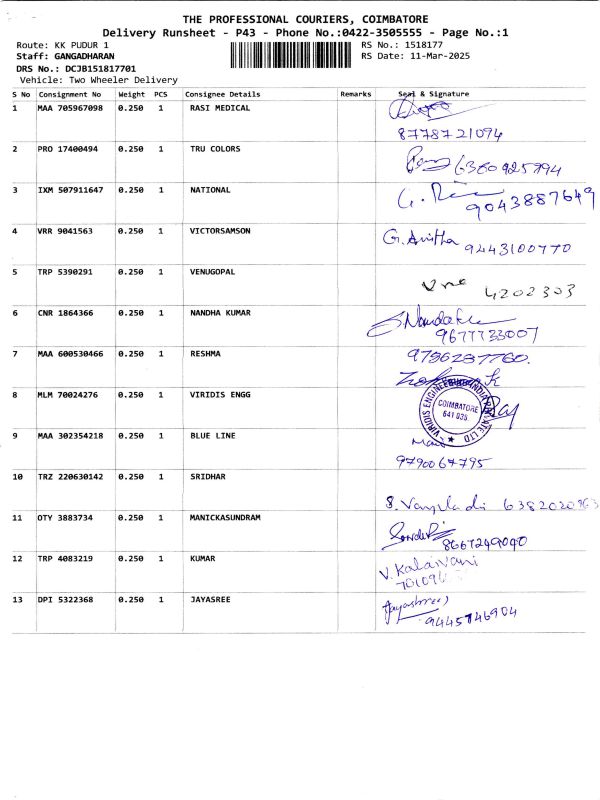 THE PROFESSIONAL COURIERS, COIMBATORE
Delivery Runsheet - P43 - Phone No.:0422-3505555 - Page No.:1
Route: KK PUDUR 1 RS No.: 1518177
Staff: GANGADHARAN RS Date: 11-Mar-2025
DRS No.: DCJB151817701
Vehicle: Two Wheeler Delivery
S No Consignment No Weight PCS Consignee Details Remarks Seal & Signature
1 MAA 705967098 0.250 1 RASI MEDICAL
8778721094
2 PRO 17400494 0.250 1 TRU COLORS
6380925994
3 IXM 507911647 0.250 1 NATIONAL
9043887649
4 VRR 9041563 0.250 1 VICTORSAMSON G. Anitha
9443100770
5 TRP 5390291 0.250 1 VENUGOPAL
4202303
6 CNR 1864366 0.250 1 NANDHA KUMAR
9677733007
7 MAA 600530466 0.250 1 RESHMA 9796287760.
8 MLM 70024276 0.250 1 VIRIDIS ENGG
COIMBATORE
641 035.
9 MAA 302354218 0.250 1 BLUE LINE
9790067795
10 TRZ 220630142 0.250 1 SRIDHAR
11 OTY 3883734 0.250 1 MANICKASUNDRAM
8667249090
12 TRP 4083219 0.250 1 KUMAR V. Kalaivani
13 DPI 5322368 0.250 1 JAYASREE Jayashree
9445746904